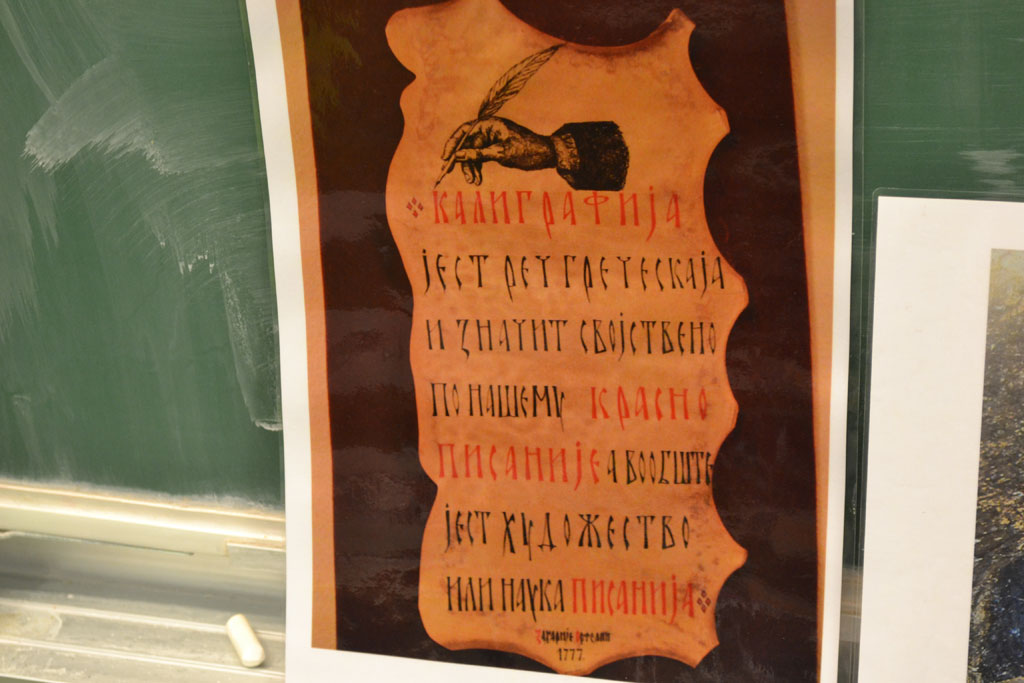 КАЛИГРАФИЈА
ЈЕСТ РЕЧ ГРЕЧЕСКАЈА
И ЗНАЧИТ СВОЈСТВЕНО
ПО НАШЕМУ КРАСНО
ПИСАНИЈЕ А ВООБШТЕ
ЈЕСТ ХУДОЖЕСТВО
ИЛИ НАУКА ПИСАНИЈА
Захарије Орфелин
1777.